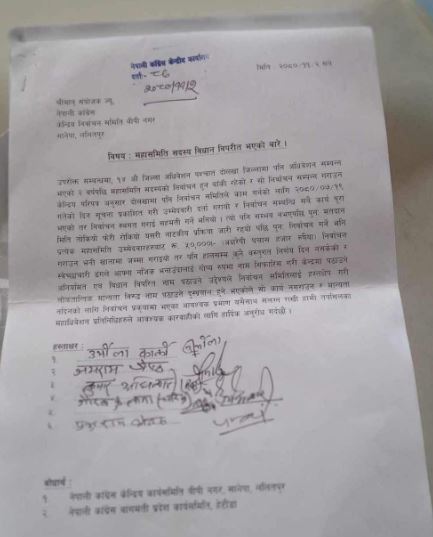 नेपाली कांग्रेस केन्द्रीय कार्यालय
दर्ता:- ८६
२०८०/११/२
मिति : २०८०-११-२ गते
श्रीमान् संयोजक ज्यू,
नेपाली कांग्रेस
केन्द्रिय निर्वाचन समिति बीपी नगर
सानेपा, ललितपुर
विषय : महासमिति सदस्य विधान विपरीत भएको बारे ।
उपरोक्त सम्बन्धमा, १४ औं जिल्ला अधिवेशन पश्चात दोलखा जिल्लामा पनि अधिवेशन सम्पन्न
भएको २ वर्षपछि महासमिति सदस्यको निर्वाचन हुन बाँकी रहेको र सो निर्वाचन सम्पन्न गराउन
केन्द्रिय परिपत्र अनुसार दोलखामा पनि निर्वाचन समितिले काम गर्नको लागि २०८०/०७/१९
गतेको दिन सूचना प्रकाशित गरी उम्मेदवारी दर्ता गरायो र निर्वाचन सम्बन्धि सबै कार्य पूरा
भएको तर निर्वाचन स्थगत गराई सहमती गर्ने भनियो । त्यो पनि सम्भव नभएपछि पुनः मतदान
मिति तोकियो फेरी रोकियो यसरी नाटकीय प्रक्रिया जारी रहयो पछि पुनः निर्वाचन गर्ने भनि
प्रत्येक महासमिति उम्मेदवारहरुबाट रु. ५०,०००/- (अक्षरेपी पचास हजार रुपैंया) निर्वाचन
गराउन भनी खातामा जम्मा गराइयो तर पनि हालसम्म कुनै वस्तुगत निर्णय दिन नसकेको र
स्वेच्छाचारी ढंगले आफ्ना नजिक भनाउँदालाई गोप्य रुपमा नाम सिफारिस गरी केन्द्रमा पठाउने
अनियमित एवं विधान विपरित नाम पठाउने उद्देश्यले निर्वाचन समितिलाई हस्तक्षेप गरी
लोकतान्त्रिक मान्यता विरुद्ध नाम पठाउने दुस्प्रयास हुने भएकोले सो कार्य नगराउन र मान्यता
नदिनको लागि निर्वाचन प्रक्रयामा भएका आवश्यक प्रमाण यसैसाथ संलग्न राखी हामी तपसिलका
महाधिवेशन प्रतिनिधिहरुले आवश्यक कारबाहीको लागि हार्दिक अनुरोध गर्दछौं ।
हस्ताक्षर :
१. उर्मीला कार्की
२
३
४
५
६
बोधार्थ :
१. नेपाली कांग्रेस केन्द्रिय कार्यसमिति बीपी नगर, सानेपा, ललितपुर
२. नेपाली कांग्रेस बागमती प्रदेश कार्यसमिति, हेटौंडा